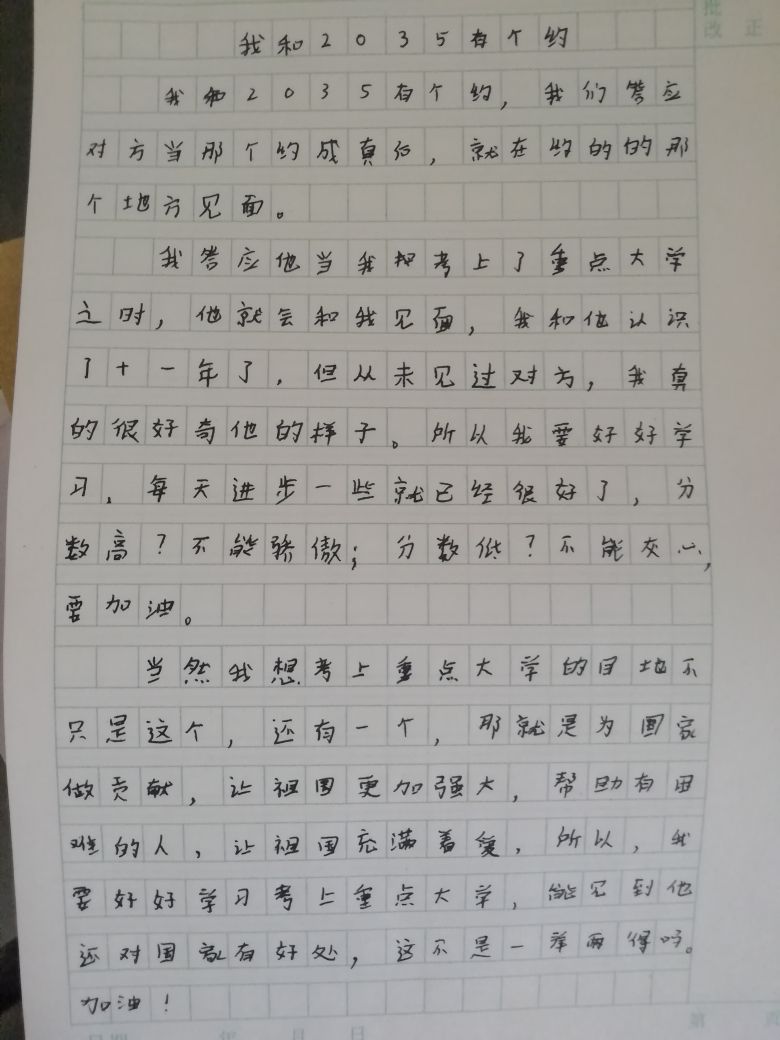 批
改 正
我和2035有个约
我和2035有个约，我们答应
对方当那个约成真后，就在约的的那
个地方见面。
我答应他当我把考上了重点大学
之时，他就会和我见面，我和他认识
了十一年了，但从未见过对方，我真
的很好奇他的样子。所以我要好好学
习，每天进步一些就已经很好了，分
数高？不能骄傲；分数低？不能灰心，
要加油。
当然我想考上重点大学的目地不
只是这个，还有一个，那就是为国家
做贡献，让祖国更加强大，帮助有困
难的人，让祖国充满着爱，所以，我
要好好学习考上重点大学，能见到他
还对国家有好处，这不是一举两得吗。
加油！
日期 年 月 日
第 页